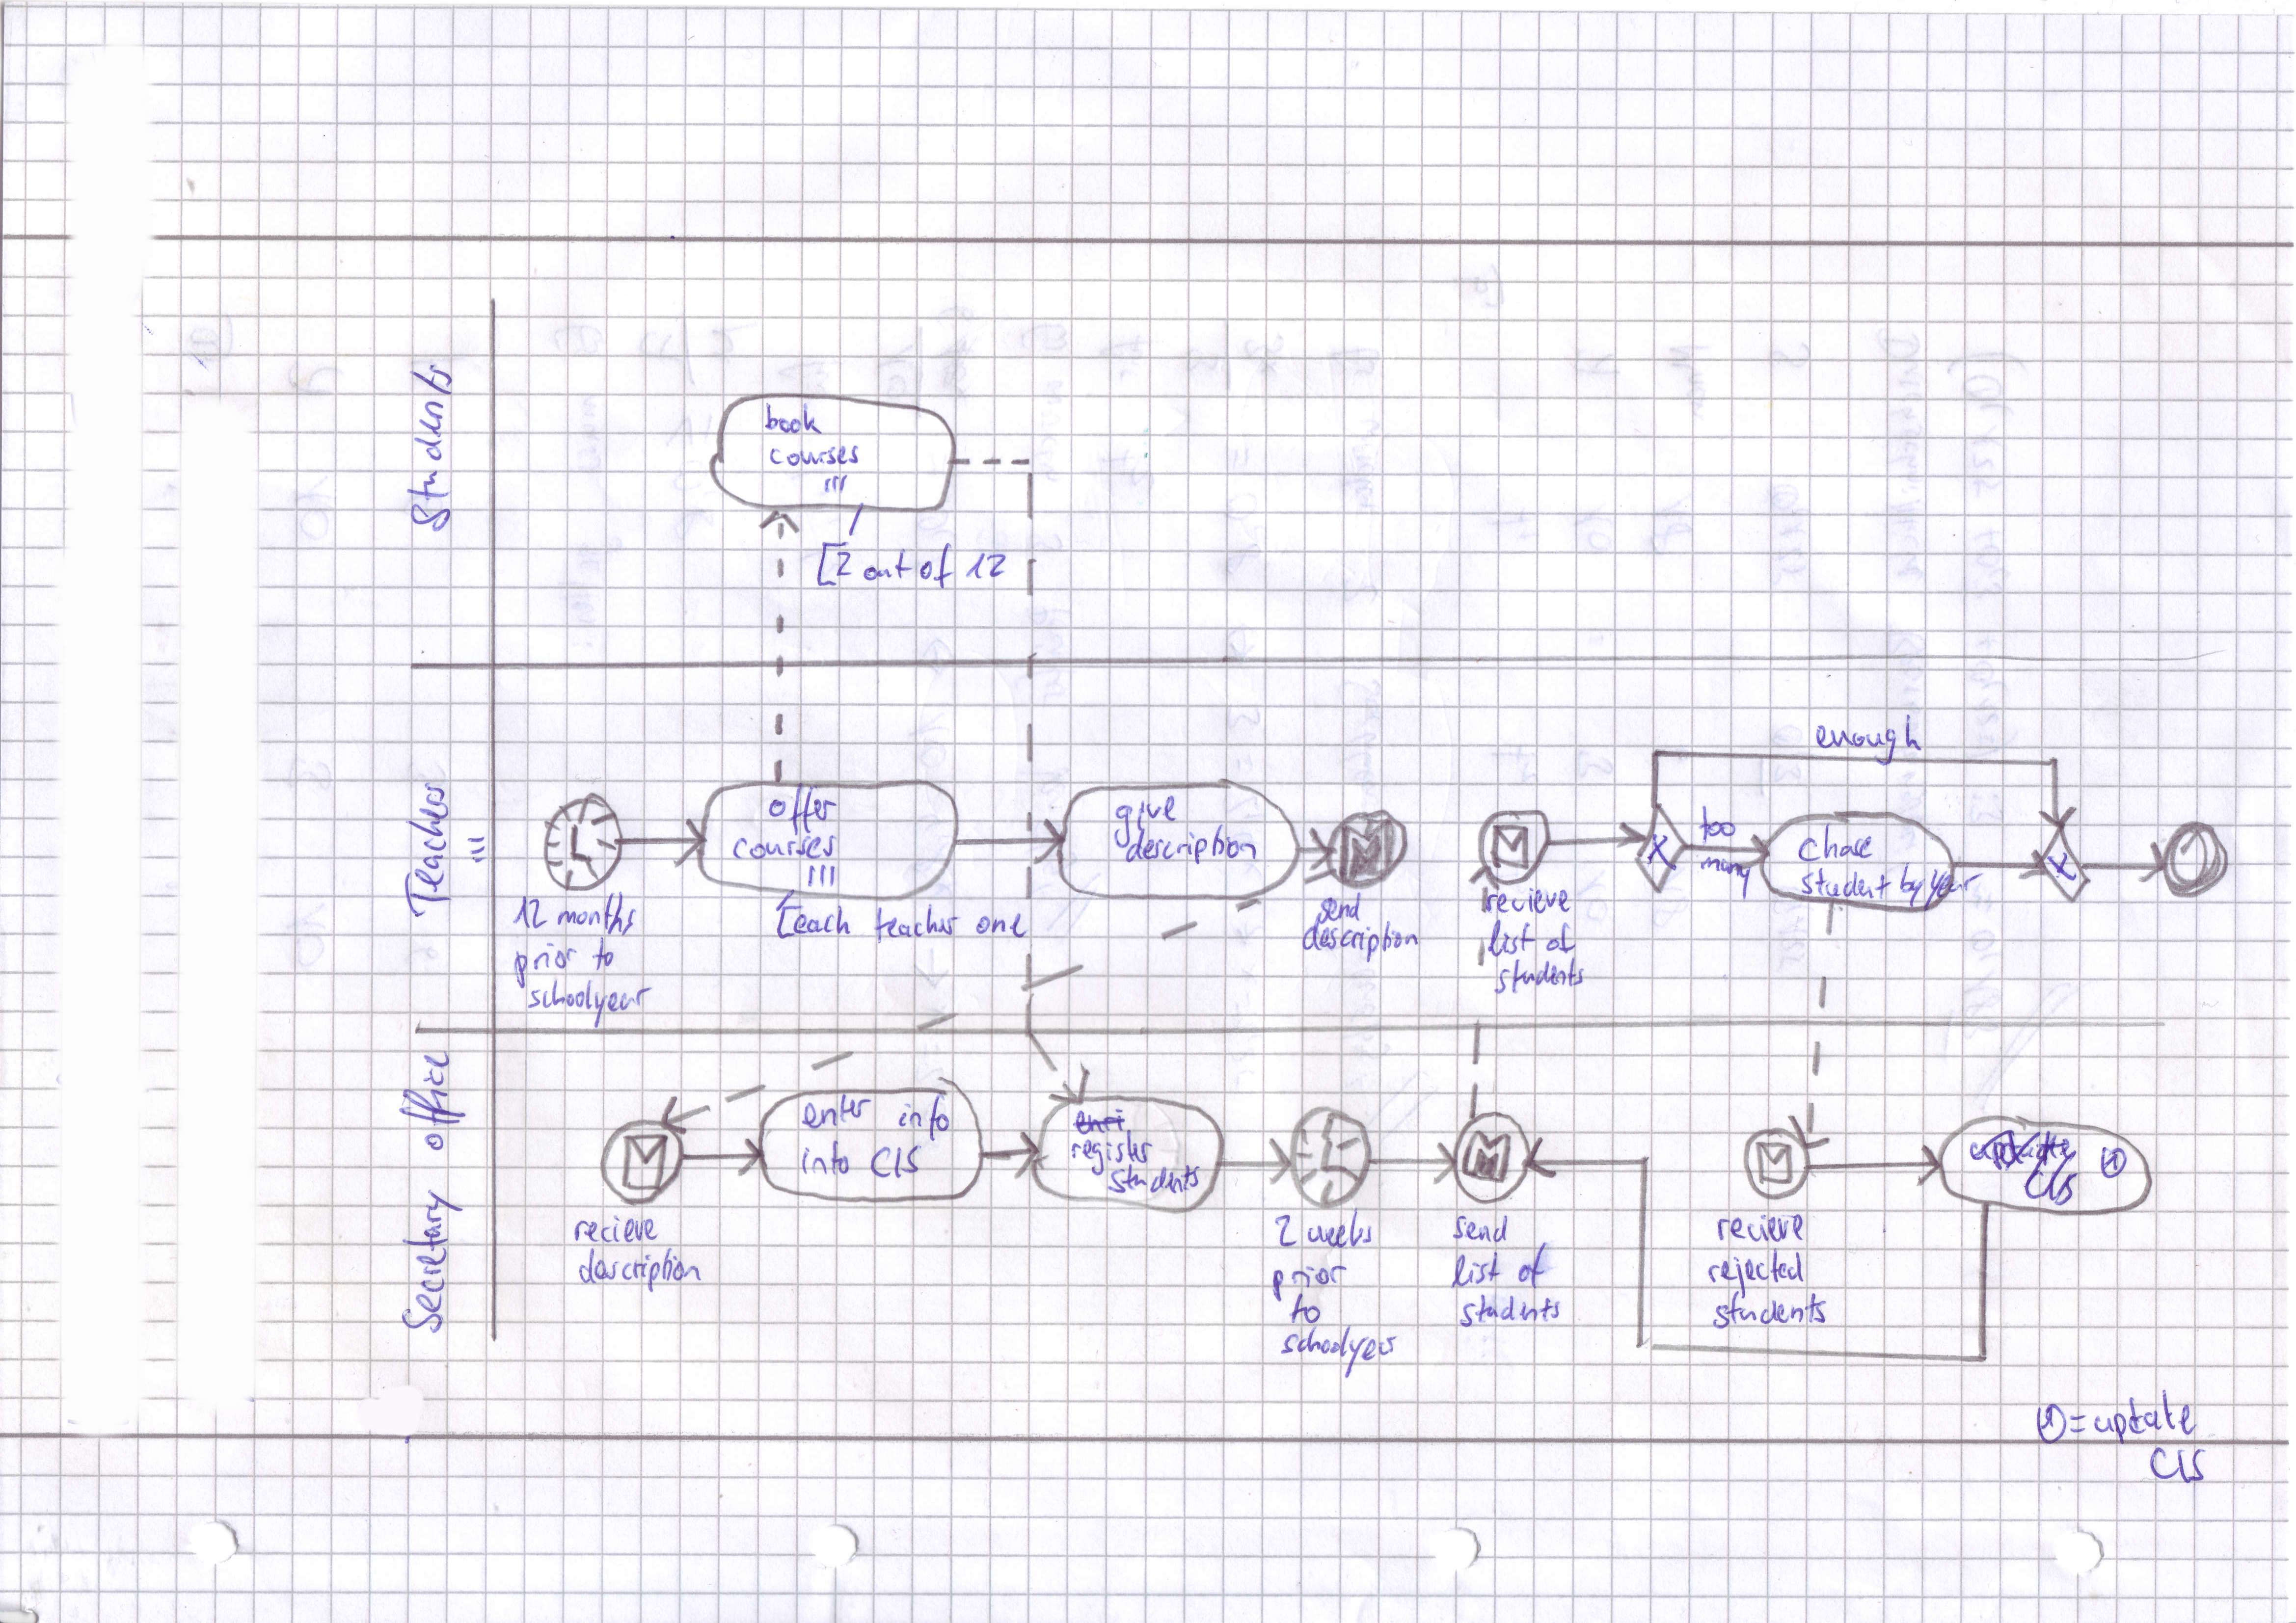 Students
book
courses
III
[2 out of 12
Teacher
III
12 months
prior to
schoolyear
offer
courses
III
[each teacher one
give
description
send
description
recieve
list of
students
X
enough
too
many
chase
student by year
X
Secretary office
recieve
description
enter info
into CIS
register
students
2 weeks
prior
to
schoolyear
send
list of
students
recieve
rejected
students
CIS
①
①=update
CIS